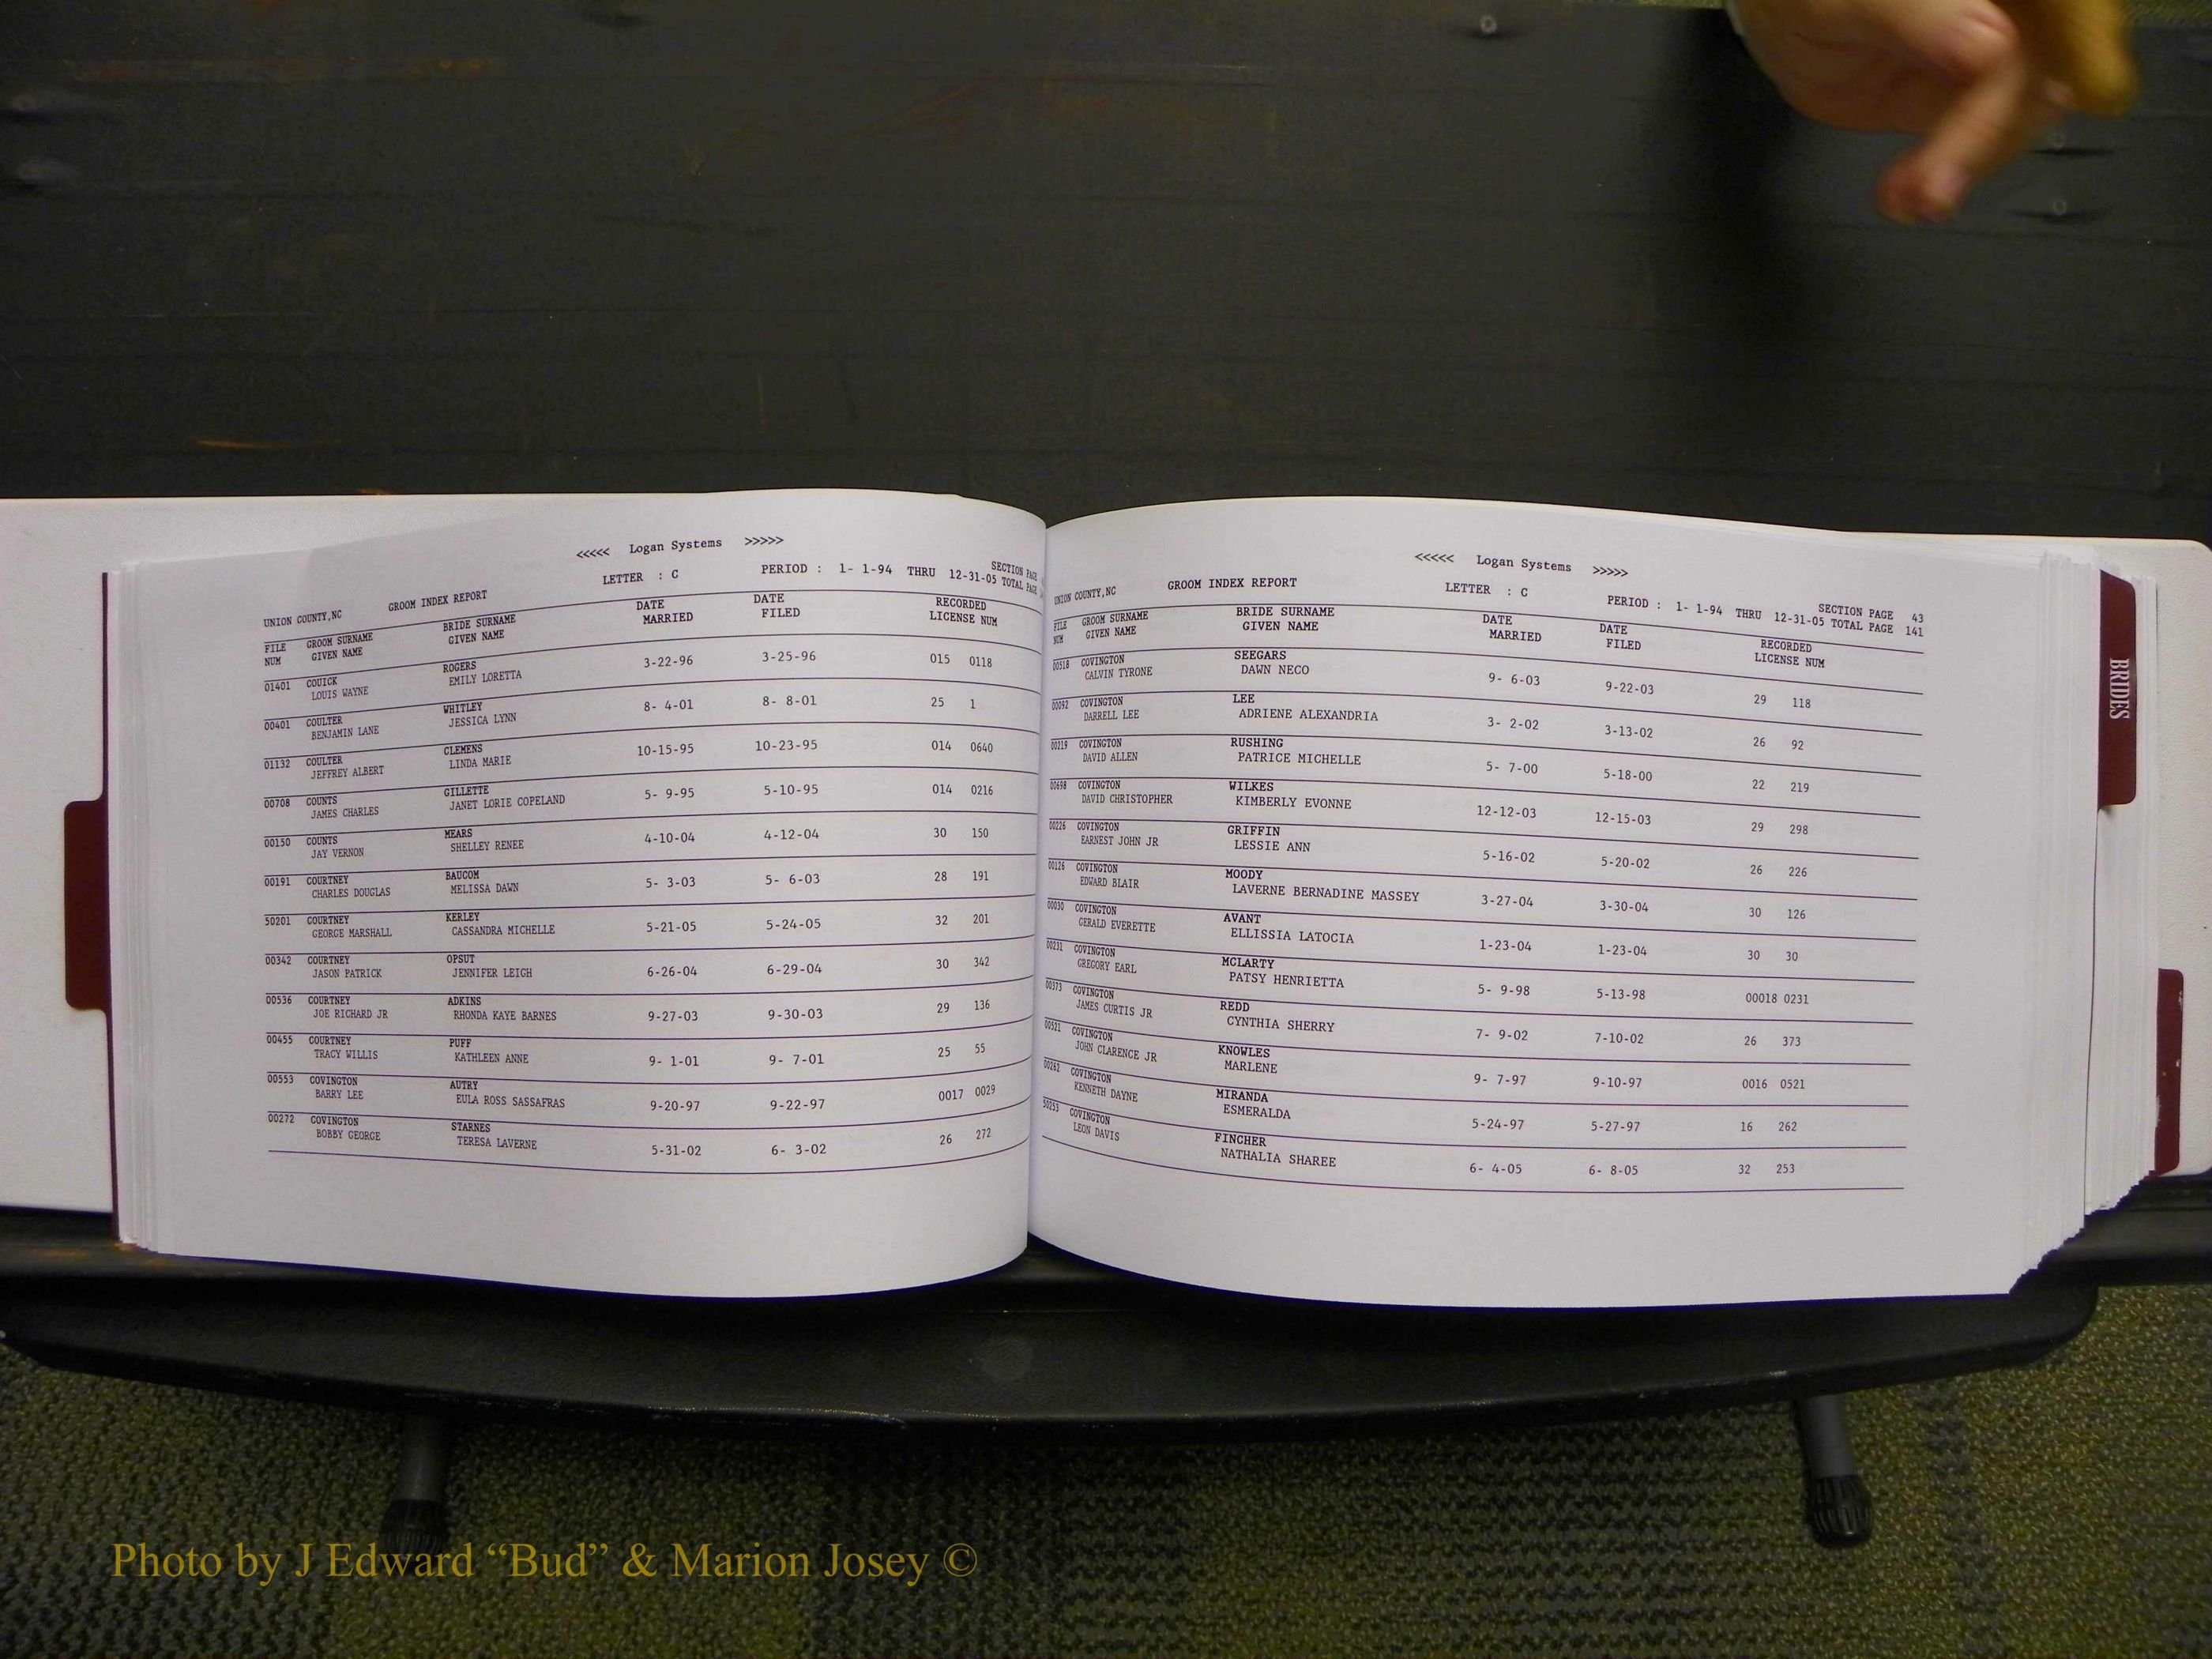 <<<<< Logan Systems >>>>>
LETTER : C PERIOD : 1- 1-94 THRU 12-31-05 SECTION PAGE
TOTAL PAGE
UNION COUNTY,NC GROOM INDEX REPORT
FILE GROOM SURNAME BRIDE SURNAME DATE DATE RECORDED
NUM GIVEN NAME GIVEN NAME MARRIED FILED LICENSE NUM
01401 COUICK ROGERS 3-22-96 3-25-96 015 0118
LOUIS WAYNE EMILY LORETTA
00401 COULTER WHITLEY 8- 4-01 8- 8-01 25 1
BENJAMIN LANE JESSICA LYNN
01132 COULTER CLEMENS 10-15-95 10-23-95 014 0640
JEFFREY ALBERT LINDA MARIE
00708 COUNTS GILLETTE 5- 9-95 5-10-95 014 0216
JAMES CHARLES JANET LORIE COPELAND
00150 COUNTS MEARS 4-10-04 4-12-04 30 150
JAY VERNON SHELLEY RENEE
00191 COURTNEY BAUCOM 5- 3-03 5- 6-03 28 191
CHARLES DOUGLAS MELISSA DAWN
50201 COURTNEY KERLEY 5-21-05 5-24-05 32 201
GEORGE MARSHALL CASSANDRA MICHELLE
00342 COURTNEY OPSUT 6-26-04 6-29-04 30 342
JASON PATRICK JENNIFER LEIGH
00536 COURTNEY ADKINS 9-27-03 9-30-03 29 136
JOE RICHARD JR RHONDA KAYE BARNES
00455 COURTNEY PUFF 9- 1-01 9- 7-01 25 55
TRACY WILLIS KATHLEEN ANNE
00553 COVINGTON AUTRY 9-20-97 9-22-97 0017 0029
BARRY LEE EULA ROSS SASSAFRAS
00272 COVINGTON STARNES 5-31-02 6- 3-02 26 272
BOBBY GEORGE TERESA LAVERNE
<<<<< Logan Systems >>>>>
UNION COUNTY,NC GROOM INDEX REPORT LETTER : C PERIOD : 1- 1-94 THRU 12-31-05 SECTION PAGE 43
TOTAL PAGE 141
FILE GROOM SURNAME BRIDE SURNAME DATE DATE RECORDED
NUM GIVEN NAME GIVEN NAME MARRIED FILED LICENSE NUM
00518 COVINGTON SEEGARS 9- 6-03 9-22-03 29 118
CALVIN TYRONE DAWN NECO
00092 COVINGTON LEE 3- 2-02 3-13-02 26 92
DARRELL LEE ADRIENE ALEXANDRIA
00219 COVINGTON RUSHING 5- 7-00 5-18-00 22 219
DAVID ALLEN PATRICE MICHELLE
00698 COVINGTON WILKES 12-12-03 12-15-03 29 298
DAVID CHRISTOPHER KIMBERLY EVONNE
00226 COVINGTON GRIFFIN 5-16-02 5-20-02 26 226
EARNEST JOHN JR LESSIE ANN
00126 COVINGTON MOODY 3-27-04 3-30-04 30 126
EDWARD BLAIR LAVERNE BERNADINE MASSEY
00030 COVINGTON AVANT 1-23-04 1-23-04 30 30
GERALD EVERETTE ELLISSIA LATOCIA
00231 COVINGTON MCLARTY 5- 9-98 5-13-98 00018 0231
GREGORY EARL PATSY HENRIETTA
00373 COVINGTON REDD 7- 9-02 7-10-02 26 373
JAMES CURTIS JR CYNTHIA SHERRY
00521 COVINGTON KNOWLES 9- 7-97 9-10-97 0016 0521
JOHN CLARENCE JR MARLENE
00262 COVINGTON MIRANDA 5-24-97 5-27-97 16 262
KENNETH DAYNE ESMERALDA
50253 COVINGTON FINCHER 6- 4-05 6- 8-05 32 253
LEON DAVIS NATHALIA SHAREE
BRIDES
Photo by J Edward “Bud” & Marion Josey ©